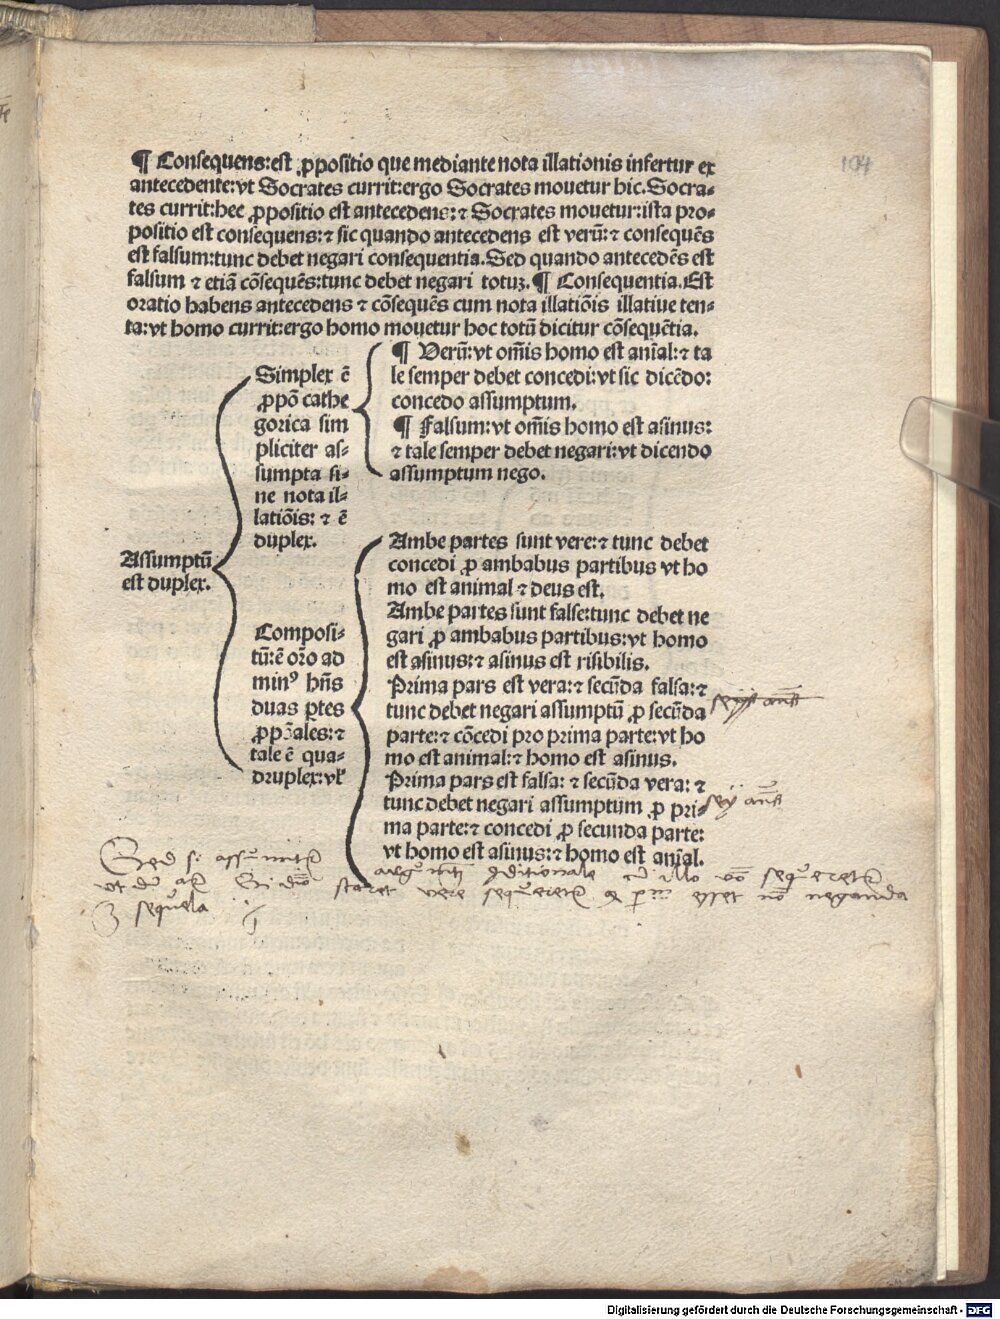 104
¶ Consequens:est ꝓpositio que mediante nota illationis infertur ex
antecedente:vt Socrates currit:ergo Socrates mouetur hic.Socra⸗
tes currit:hec ꝓpositio est antecedens:⁊ Socrates mouetur:ista pro⸗
positio est consequens:⁊ sic quando antecedens est verū:⁊ consequēs
est falsum:tunc debet negari consequentia.Sed quando antecedēs est
falsum ⁊ etiā cōsequēs:tunc debet negari totuꝫ.¶ Consequentia.Est
oratio habens antecedens ⁊ cōsequēs cum nota illatiōis illatiue ten⸗
ta:vt homo currit:ergo homo mouetur hoc totū dicitur cōsequētia.
Assumptū
est duplex.
Simplex ē
ꝓpō cathe
gorica sim
pliciter as⸗
sumpta si⸗
ne nota il⸗
latiōis: ⁊ ē
duplex.
¶ Verū:vt om̄is homo est aīal:⁊ ta
le semper debet concedi:vt sic dicēdo:
concedo assumptum.
¶ Falsum:vt om̄is homo est asinus:
⁊ tale semper debet negari:vt dicendo
assumptum nego.
Composi⸗
tū:ē orō ad
minꝰ hn̄s
duas ꝑtes
ꝓpōales:⁊
tale ē qua⸗
druplex:vꝉ
Ambe partes sunt vere:⁊ tunc debet
concedi ꝓ ambabus partibus vt ho
mo est animal ⁊ deus est.
Ambe partes sunt false:tunc debet ne
gari ꝓ ambabus partibus:vt homo
est asinus:⁊ asinus est risibilis.
Prima pars est vera:⁊ secūda falsa:⁊
tunc debet negari assumptū ꝓ secūda
parte:⁊ cōcedi pro prima parte:vt ho
mo est animal:⁊ homo est asinus.
Prima pars est falsa: ⁊ secūda vera: ⁊
tunc debet negari assumptum ꝓ pri⸗
ma parte:⁊ concedi ꝓ secunda parte:
vt homo est asinus:⁊ homo est aīal.
Sed si assumitur
sequela
Digitalisierung gefördert durch die Deutsche Forschungsgemeinschaft - DFG